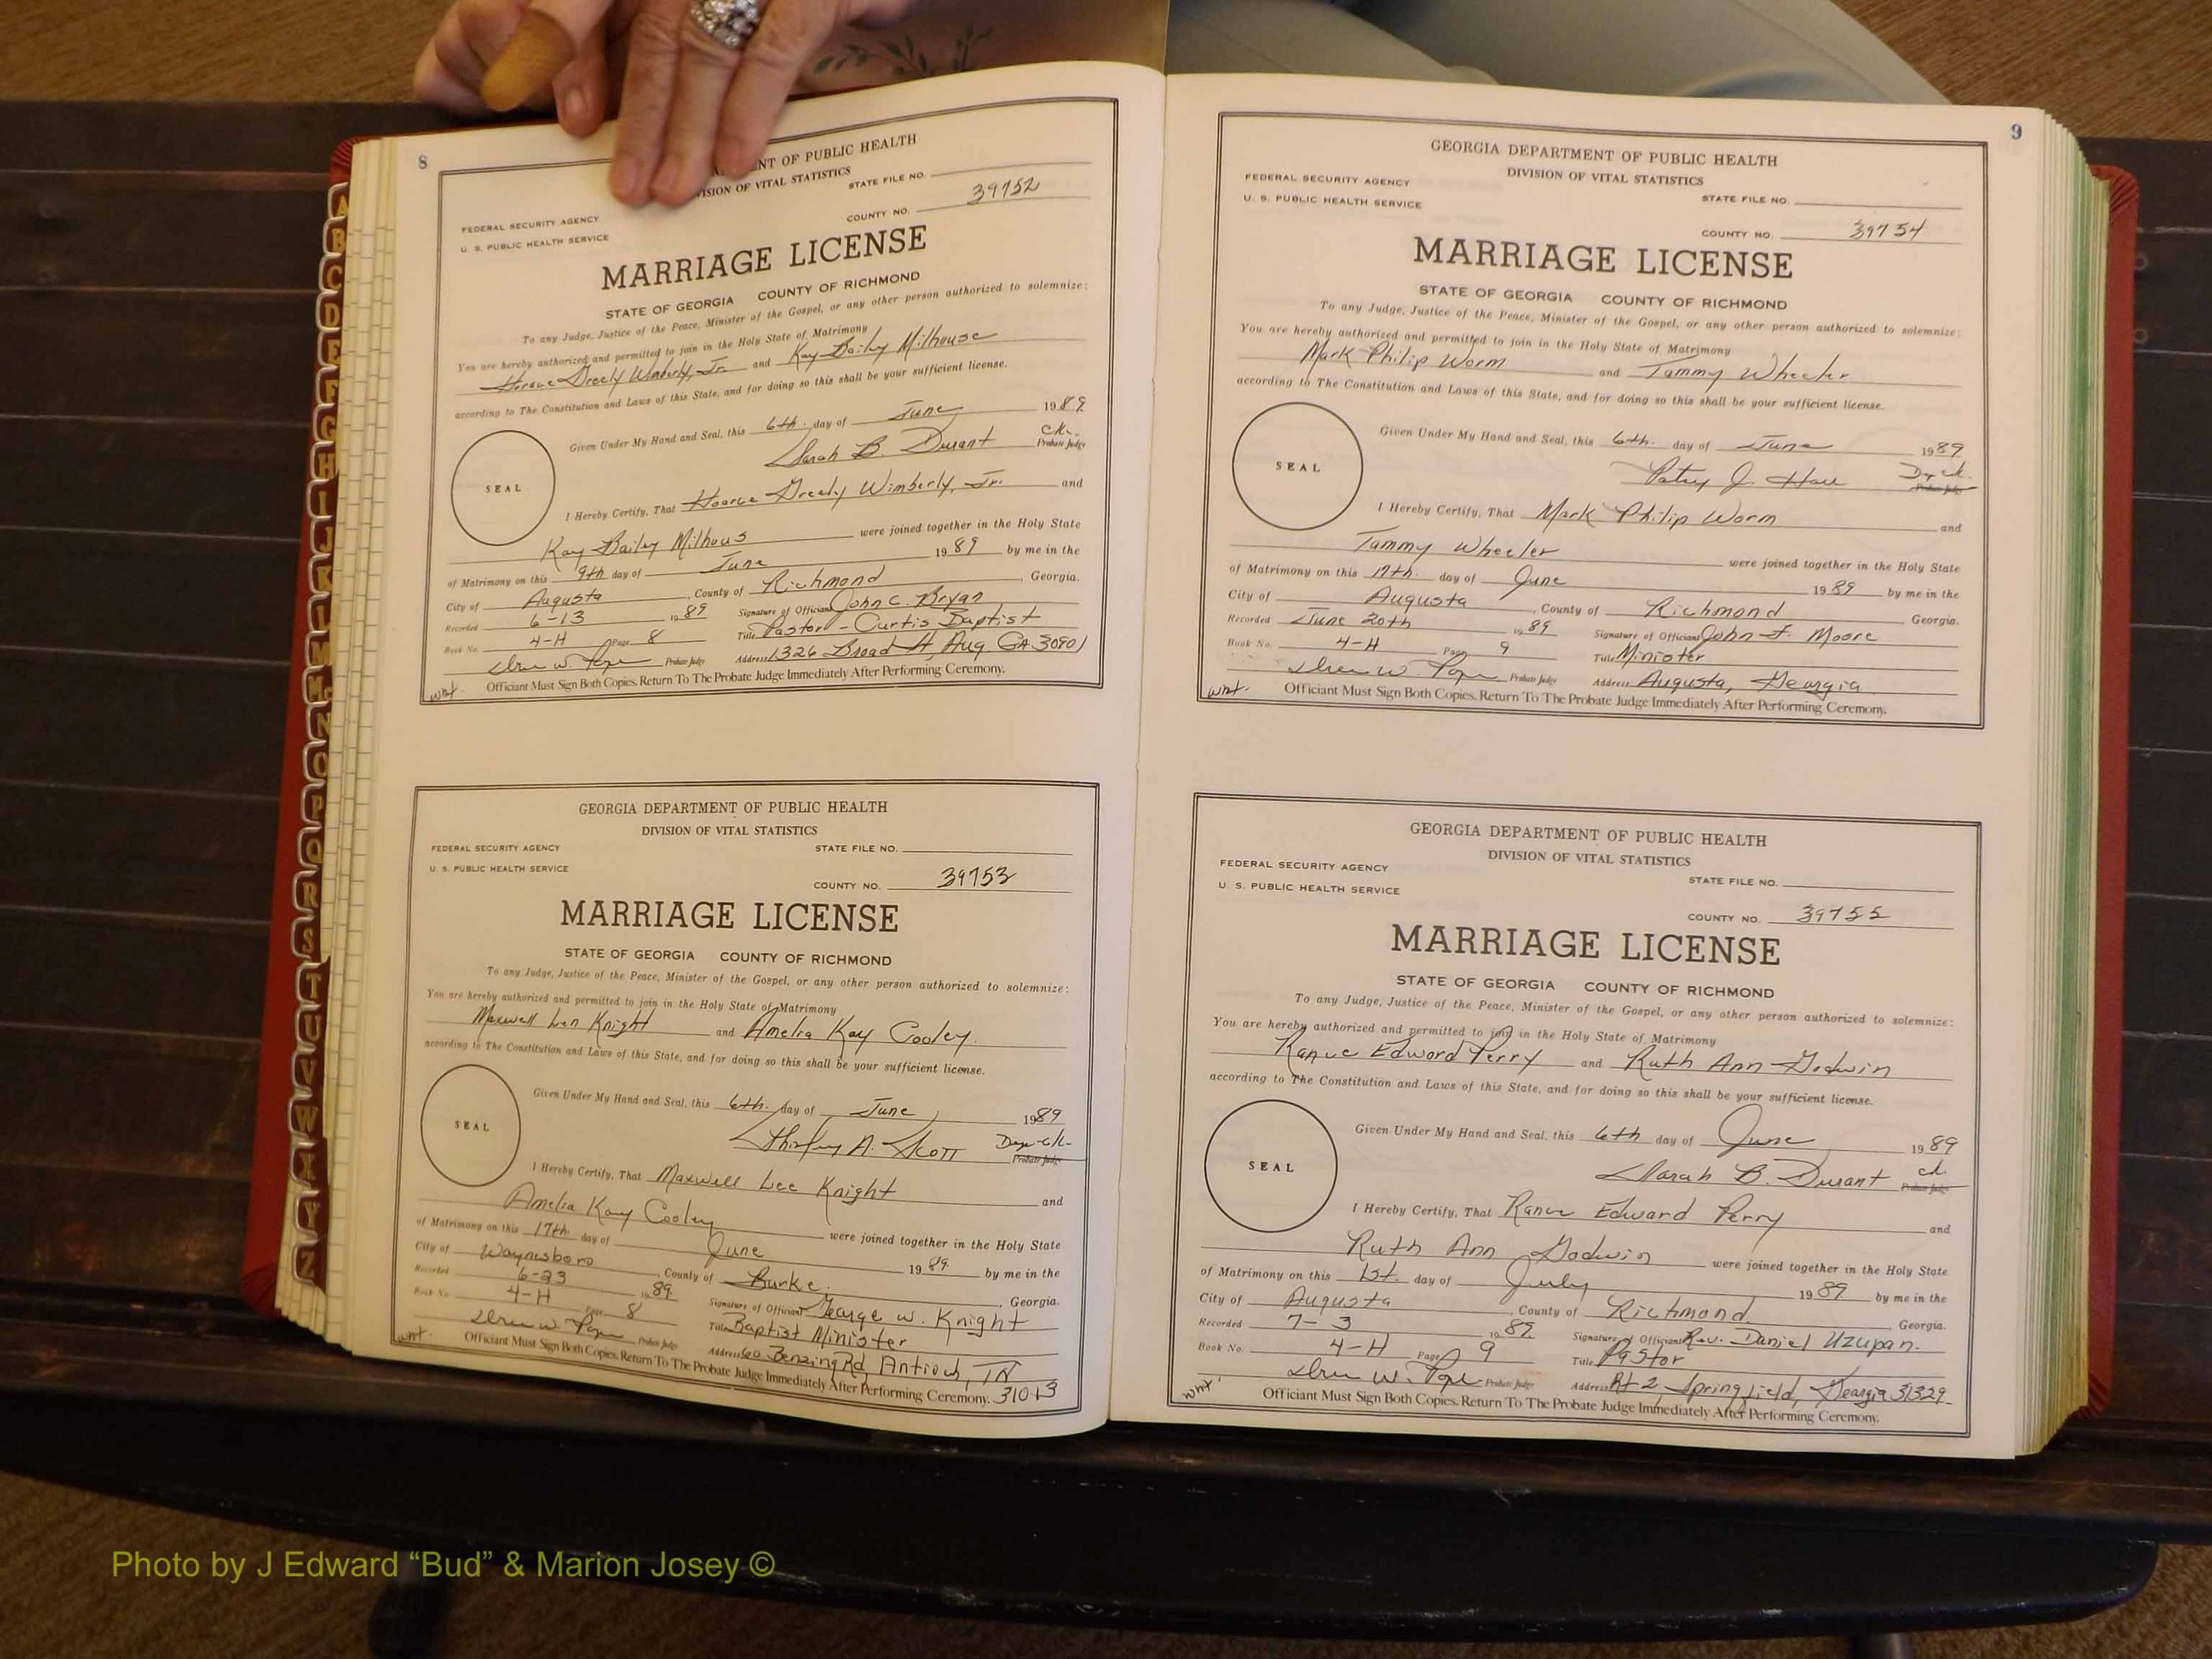 8
NT OF PUBLIC HEALTH
ISION OF VITAL STATISTICS
STATE FILE NO.
FEDERAL SECURITY AGENCY
U. S. PUBLIC HEALTH SERVICE
COUNTY NO. 39752
MARRIAGE LICENSE
STATE OF GEORGIA COUNTY OF RICHMOND
To any Judge, Justice of the Peace, Minister of the Gospel, or any other person authorized to solemnize:
You are hereby authorized and permitted to join in the Holy State of Matrimony
Horace Greely Wimberly, Jr. and Kay Baily Milhouse
according to The Constitution and Laws of this State, and for doing so this shall be your sufficient license.
Given Under My Hand and Seal, this 6th. day of June 1989
Sarah B. Durant Ck. Probate Judge
SEAL
I Hereby Certify, That Hoarce Greely Wimberly, Jr. and
Kay Bailey Milhous were joined together in the Holy State
of Matrimony on this 9th day of June 1989 by me in the
City of Augusta, County of Richmond, Georgia.
Recorded 6-13 1989 Signature of Officiant John C. Bryan
Book No. 4-H Page 8 Title Pastor - Curtis Baptist
Probate Judge Address 1326 Broad St, Aug GA 30901
wnt. Officiant Must Sign Both Copies. Return To The Probate Judge Immediately After Performing Ceremony.
GEORGIA DEPARTMENT OF PUBLIC HEALTH
DIVISION OF VITAL STATISTICS
FEDERAL SECURITY AGENCY
STATE FILE NO.
U. S. PUBLIC HEALTH SERVICE
COUNTY NO. 39753
MARRIAGE LICENSE
STATE OF GEORGIA COUNTY OF RICHMOND
To any Judge, Justice of the Peace, Minister of the Gospel, or any other person authorized to solemnize:
You are hereby authorized and permitted to join in the Holy State of Matrimony
Maxwell Len Knight and Amelia Kay Cooley.
according to The Constitution and Laws of this State, and for doing so this shall be your sufficient license.
Given Under My Hand and Seal, this 6th. day of June 1989
Shirley A. Scott Dep-Clk- Probate Judge
SEAL
I Hereby Certify, That Maxwell Lee Knight and
Amelia Kay Cooley were joined together in the Holy State
of Matrimony on this 17th. day of June 1989. by me in the
City of Waynesboro, County of Burke, Georgia.
Recorded 6-23 1989. Signature of Officiant George W. Knight
Book No. 4-H Page 8 Title Baptist Minister
Probate Judge Address 60 Benzing Rd, Antioch, TN
wnt. Officiant Must Sign Both Copies. Return To The Probate Judge Immediately After Performing Ceremony. 31013
9
GEORGIA DEPARTMENT OF PUBLIC HEALTH
DIVISION OF VITAL STATISTICS
FEDERAL SECURITY AGENCY
STATE FILE NO.
U. S. PUBLIC HEALTH SERVICE
COUNTY NO. 39754
MARRIAGE LICENSE
STATE OF GEORGIA COUNTY OF RICHMOND
To any Judge, Justice of the Peace, Minister of the Gospel, or any other person authorized to solemnize:
You are hereby authorized and permitted to join in the Holy State of Matrimony
Mark Philip Worm and Tammy Wheeler
according to The Constitution and Laws of this State, and for doing so this shall be your sufficient license.
Given Under My Hand and Seal, this 6th. day of June 1989
Patsy J. Hall Dep Ck. Probate Judge
SEAL
I Hereby Certify, That Mark Philip Worm and
Tammy Wheeler were joined together in the Holy State
of Matrimony on this 17th. day of June 1989 by me in the
City of Augusta, County of Richmond Georgia.
Recorded June 20th 1989 Signature of Officiant John F. Moore
Book No. 4-H Page 9 Title Minister
Probate Judge Address Augusta, Georgia
wnt. Officiant Must Sign Both Copies. Return To The Probate Judge Immediately After Performing Ceremony.
GEORGIA DEPARTMENT OF PUBLIC HEALTH
DIVISION OF VITAL STATISTICS
FEDERAL SECURITY AGENCY
STATE FILE NO.
U. S. PUBLIC HEALTH SERVICE
COUNTY NO. 39755
MARRIAGE LICENSE
STATE OF GEORGIA COUNTY OF RICHMOND
To any Judge, Justice of the Peace, Minister of the Gospel, or any other person authorized to solemnize:
You are hereby authorized and permitted to join in the Holy State of Matrimony
Rance Edward Perry and Ruth Ann Godwin
according to The Constitution and Laws of this State, and for doing so this shall be your sufficient license.
Given Under My Hand and Seal, this 6th day of June 1989
Sarah B. Durant Ck. Probate Judge
SEAL
I Hereby Certify, That Rance Edward Perry and
Ruth Ann Godwin were joined together in the Holy State
of Matrimony on this 1st. day of July 1989 by me in the
City of Augusta, County of Richmond Georgia.
Recorded 7-3 1989 Signature of Officiant Rev. Daniel Uzupan.
Book No. 4-H Page 9 Title Pastor
Probate Judge Address Rt-2, Springfield, Georgia 31329
wnt. Officiant Must Sign Both Copies. Return To The Probate Judge Immediately After Performing Ceremony.
A
B
C
D
E
F
G
H
I
J
K
L
M
Mc
N
O
P
Q
R
S
T
U
V
W
X
Y
Z
Photo by J Edward “Bud” & Marion Josey ©